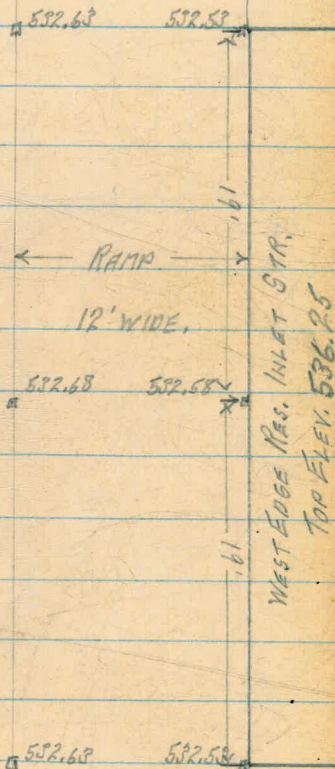 532.63 532.53
19'
RAMP
12' WIDE.
532.68 532.58
19'
532.63 532.53
WEST EDGE RES. INLET STR.
TOP ELEV. 536.25